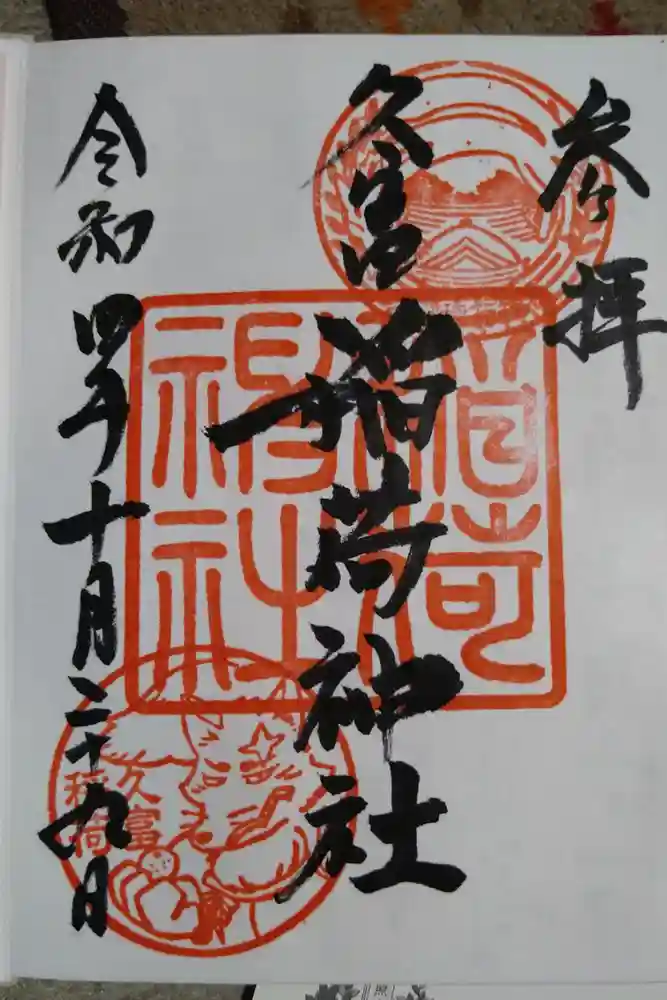 参拝
久富稲荷神社
令和四年十月二十九日
稲荷
神社
久富
稲荷